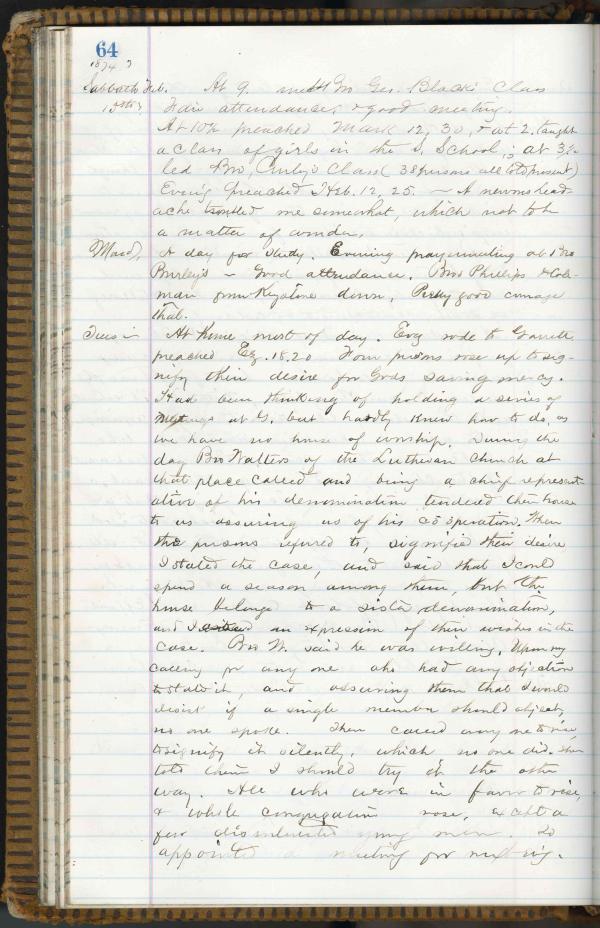 64
1874
Sabbath Feb. At 9. met Bro Geo. Black's Class
15th Fair attendance, & good meeting.
At 10½ preached Mark 12, 30, & at 2, taught
a class of girls in the S. School; at 3½
led Bro, Curley's Class (38 persons all told present)
Even'g preached Heb. 12, 25. ~ A nervous head-
ache troubled me somewhat, which not to be
a matter of wonder.
Mond, A day for study. Evening prayermeeting at Bro
Burley's ~ Good attendance. Bros Phillips & Cole-
man from Keystone down. Pretty good
that.
Tues At home most of day. Evg rode to Garrett
preached Ez. 18.20 Four persons rose up to sig-
nify their desire for Gods saving mercy.
Had been thinking of holding a series of
meetings at G. but hardly knew how to do, as
we have no house of worship. During the
day Bro Walters of the Lutheran Church at
that place called and being a chief represent-
ative of his denomination tendered their house
to us assuring us of his coöperation. When
the persons referred to, signified their desire
I stated the case, and said that I could
spend a season among them, but the
house belonged to a sister denomination,
and I an expression of their wishes in the
case. Bro W. said he was willing. Upon my
calling for any one who had any objection
to state it, and assuring them that I would
desist if a single member should object,
no one spoke. Then called any one to rise,
to signify it silently, which no one did. Then
told them I should try it the other
way. All who were in favor to rise,
& whole congregation rose, except a
few disinterested young men. So
appointed a meeting for next evg.